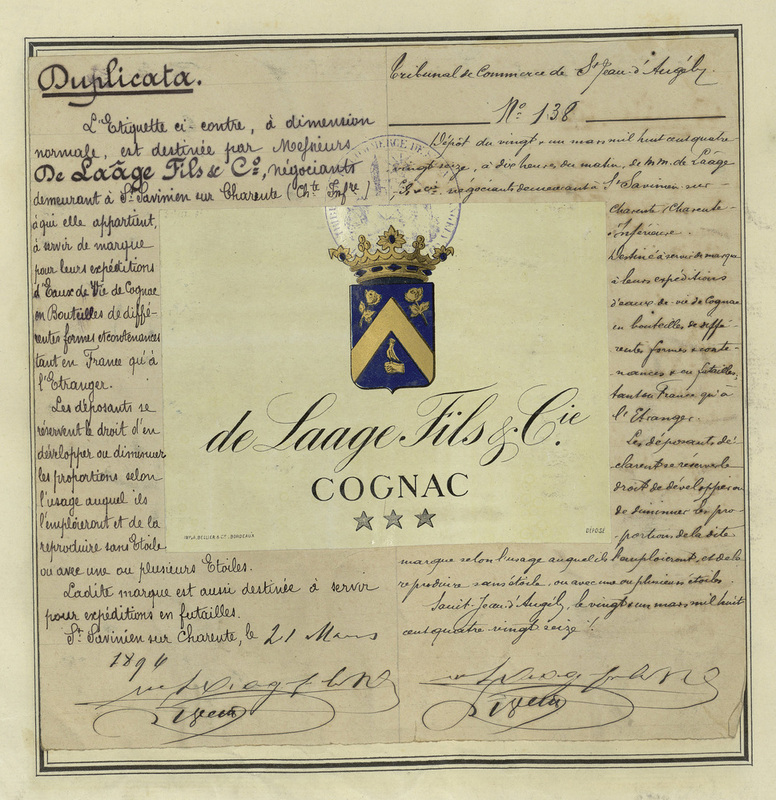 Duplicata.
L'Etiquette ci-contre, à dimension
normale, est destinée par Messieurs
De Laâge Fils & Co, négociants
demeurant à St Savinien sur Charente (Chte Infre)
à qui elle appartient,
à servir de marque
pour leurs expéditions
d'Eaux de Vie de Cognac
en Bouteilles de diffé-
rentes formes et contenances
tant en France qu'à
l'Etranger.
Les déposants se
réservent le droit d'en
développer ou diminuer
les proportions selon
l'usage auquel ils
l'emploieront et de la
reproduire sans Etoile
ou avec une ou plusieurs Etoiles.
Ladite marque est aussi destinée à servir
pour expéditions en futailles.
St Savinien sur Charente, le 21 Mars
1896
Tribunal de Commerce de St Jean d'Angély
No 138
Dépôt du vingt & un mars mil huit cent quatre
vingt seize, à dix heures du matin, de mm. de Laâge
fils & cie négociants demeurant à St Savinien sur
Charente, Charente-
Inférieure.
Destiné à servir de marque
à leurs expéditions
d'eaux-de-vie de Cognac
en bouteilles de diffé-
rentes formes & conte-
nances & en futailles,
tant en France qu'à
l'Etranger.
Les déposants dé-
clarent se réserver le
droit de développer ou
de diminuer les pro-
portions de la dite
marque selon l'usage auquel ils l'emploieront, et de la
reproduire sans étoile, ou avec une ou plusieurs étoiles.
Saint-Jean d'Angély, le vingt & un mars mil huit
cent quatre vingt seize.
de Laage Fils & Cie.
COGNAC
BELLIER & Cie. BORDEAUX
DÉPOSÉ